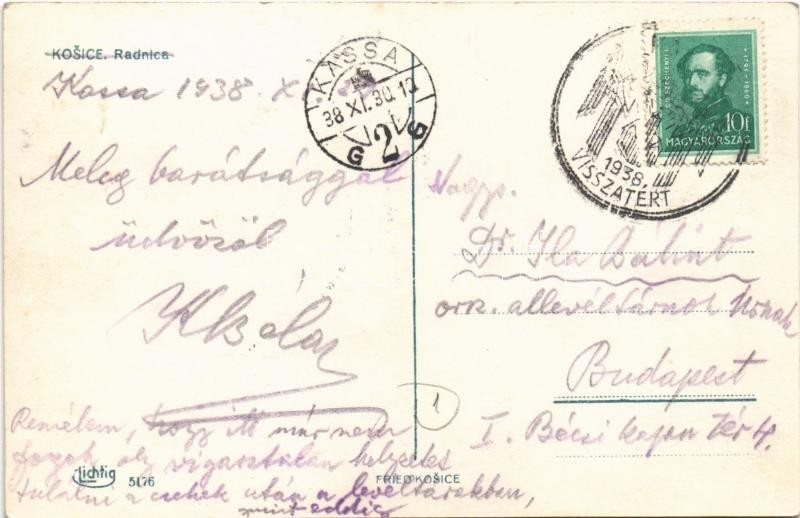 KOŠICE. Radnica
Kassa 1938. X
KASSA
38 XI. 30. 12
2
G G
1938.
VISSZATÉRT
GR. SZÉCHENYI I.
1791-1860
10f
MAGYARORSZÁG
Meleg barátsággal
üdvözöl
KBéla
Remélem, hogy itt már nem
fogok oly vigasztalan helyzetet
találni a csehek után a levéltárakban,
mint eddig
Lichtig
5176
FRIED KOŠICE
1
Nagys.
Dr. Ila Bálint
orsz. allevéltárnok Úrnak
Budapest
I. Bécsi kapu tér 4.